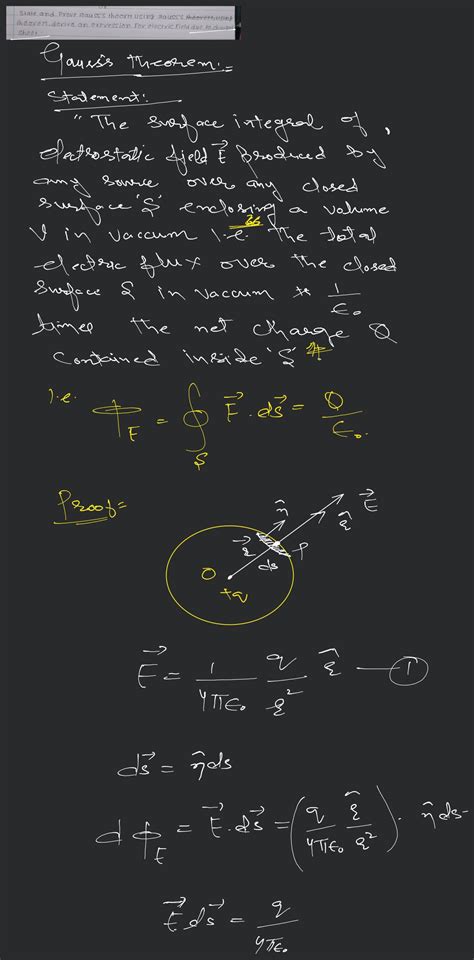 State and Prove Gauss's theorem using Gauss's theorem, using
theorem derive an expression for electric field due to
sheet.
Gauss's theorem:-
Statement:-
"The surface integral of,
eletrostatic field E⃗ Produced by
any source over any closed
surface 'S' enclosing a volume
V in vaccum i.e. The total
electric flux over the closed
Surface S in vaccum is 1/ε₀
times the net charge Q
Contained inside 'S'
i.e. Φ_E = ∮_S E⃗ . ds⃗ = Q/ε₀.
Proof=
n̂ E⃗
r⃗ r̂
P
O ds
+q
E⃗ = 1/4πε₀ q/r² r̂ — ①
ds⃗ = n̂ds
dΦ_E = E⃗.ds⃗ = (q/4πε₀ r̂/r²) . n̂ ds
E⃗ ds⃗ = q/4πε₀